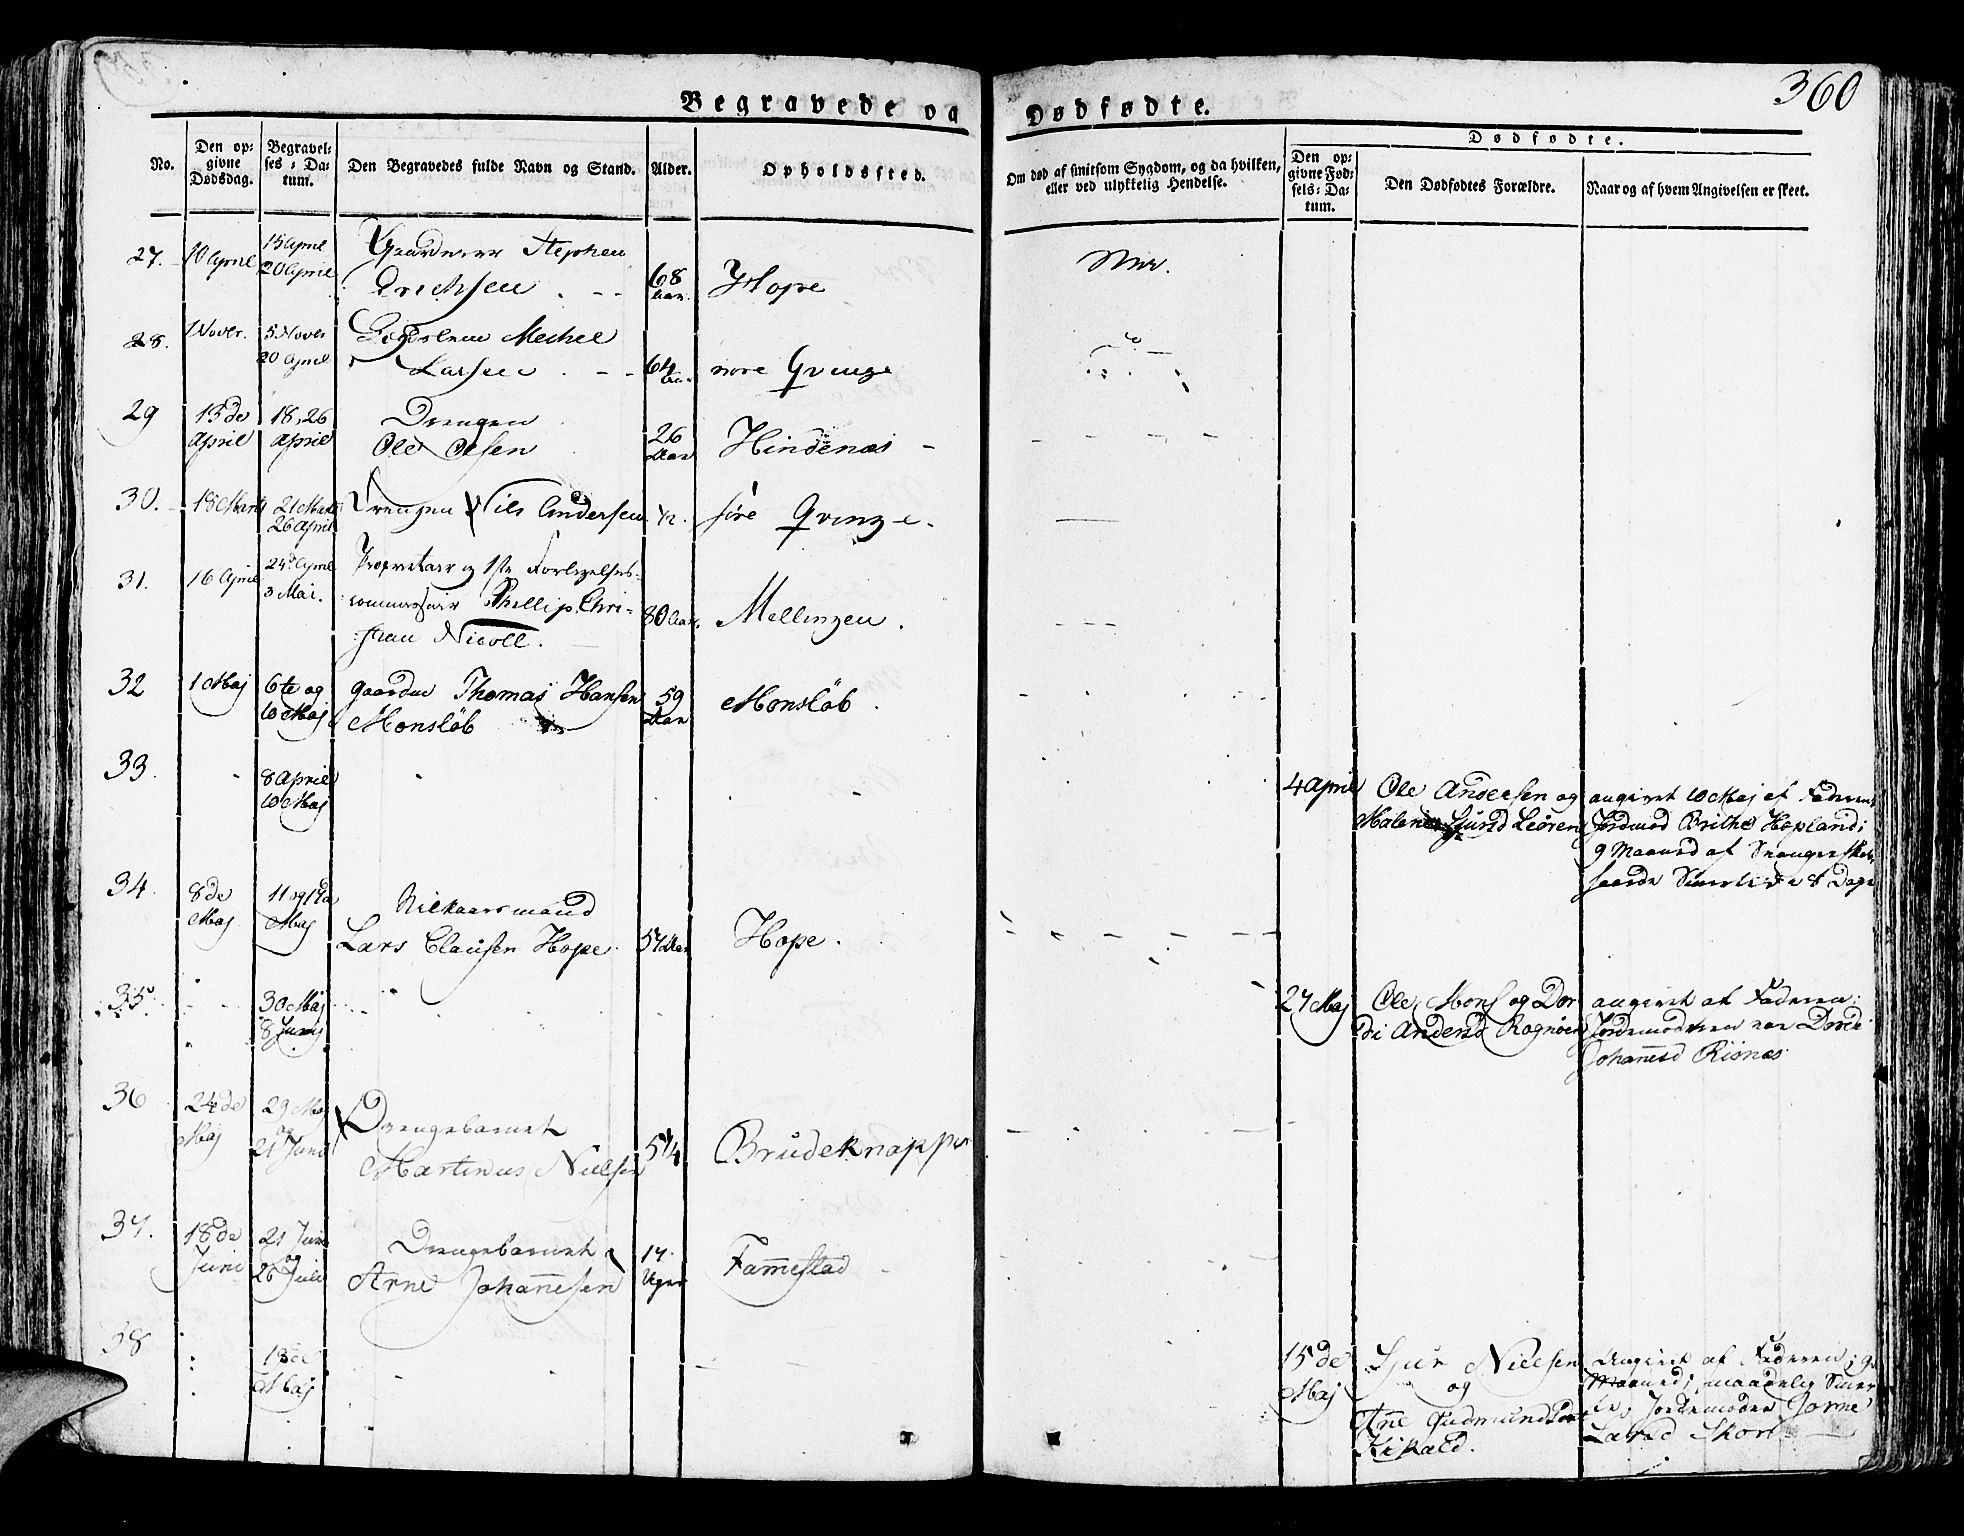 360
Begravede og Dødfødte.
Dødfødte.
No.
Den op-
givne
Dødsdag.
Begravel-
ses-Da-
tum.
Den Begravedes fulde Navn og Stand.
Alder.
Opholdssted.
Om død af smitsom Sygdom, og da hvilken,
eller ved ulykkelig Hendelse.
Den op-
givne Fød-
sels-Da-
tum.
Den Dødfødtes Forældre.
Naar og af hvem Angivelsen er skeet.
27. 10 April 15 April
20 April
Stephen
Erichsen 68
Aar. Hope
28. 1 Novbr. 5 Novbr
20 April
Mechel
Larsen 64
Aar nore Qvinge
29 13de
April 18, 26
April
Drengen
Ole Olsen 26
Aar Hindenæs
30. 18 Marts 21 Marts
26 April
Drengen Nils Andersen ½. søre Qvinge.
31. 16 April 24 April
3 Mai.
Proprietair og 1ste Forligelses-
commissair Phillip Chri-
stian Nicoll. 80 Aar. Mellingen.
32 1 Maj 6te og
10 Maj
Thomas Hansen
Monsløb 59
Aar Monsløb.
33. 8 April
10 Maj
4 April Ole Andersen og
Malene Siursd Leiren
angivet 10 Maj af Faderen
Jordmod Brithe Hopland;
9 Maaned af
8 Dage
34. 8de
Maj 11 og
Maj
Lars Clausen Hope. 57 Aar Hope.
35. 30 Maj
8 Juni
27 Maj Ole Mons og Dor
di Andersd Rognøen
angivet af Faderen;
Jordemoderen var Dorde
Johannesd Risnæs
36 24de
Maj 29 Maj
og
21 Juni
Drengebarnet
Martinus Nielsen 5¼ Brudeknappen
37. 18de
Juni 21 Juni
og
26 Juli
Drengebarnet
Arne Johannesen 17
Uger Fammestad
38 18de
Maj
15de
Maj
Sjur Nielsen
og
Ane Gudmundsdat
Angivet af Faderen; 9
Maaned;
Jordemoder
Larsd